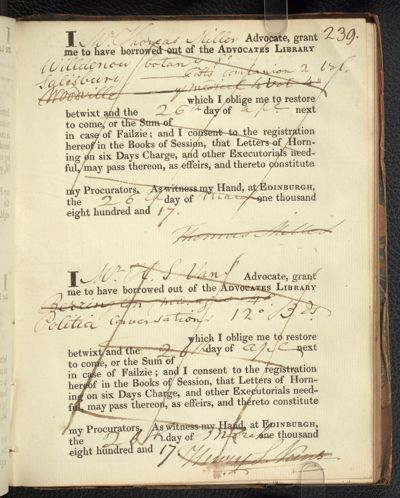 239.
I Mr Thomas Miller Advocate, grant
me to have borrowed out of the ADVOCATES LIBRARY
Willdenow botany
Salisbury companion 2 Vol.
Woodville medical
which I oblige me to restore
betwixt and the 26th day of apl next
to come, or the Sum of
in case of Failzie; and I consent to the registration
hereof in the Books of Session, that Letters of Horn-
ing on six Days Charge, and other Executorials need-
ful, may pass thereon, as effeirs, and thereto constitute
my Procurators. As witness my Hand, at EDINBURGH,
the 26th day of March one thousand
eight hundred and 17.
Thomas Miller
I Mr H S Vans Advocate, grant
me to have borrowed out of the ADVOCATES LIBRARY
Politia Conversations 12o
which I oblige me to restore
betwixt and the 26 day of apl next
to come, or the Sum of
in case of Failzie; and I consent to the registration
hereof in the Books of Session, that Letters of Horn-
ing on six Days Charge, and other Executorials need-
ful, may pass thereon, as effeirs, and thereto constitute
my Procurators. As witness my Hand, at EDINBURGH,
the 26th day of March one thousand
eight hundred and 17